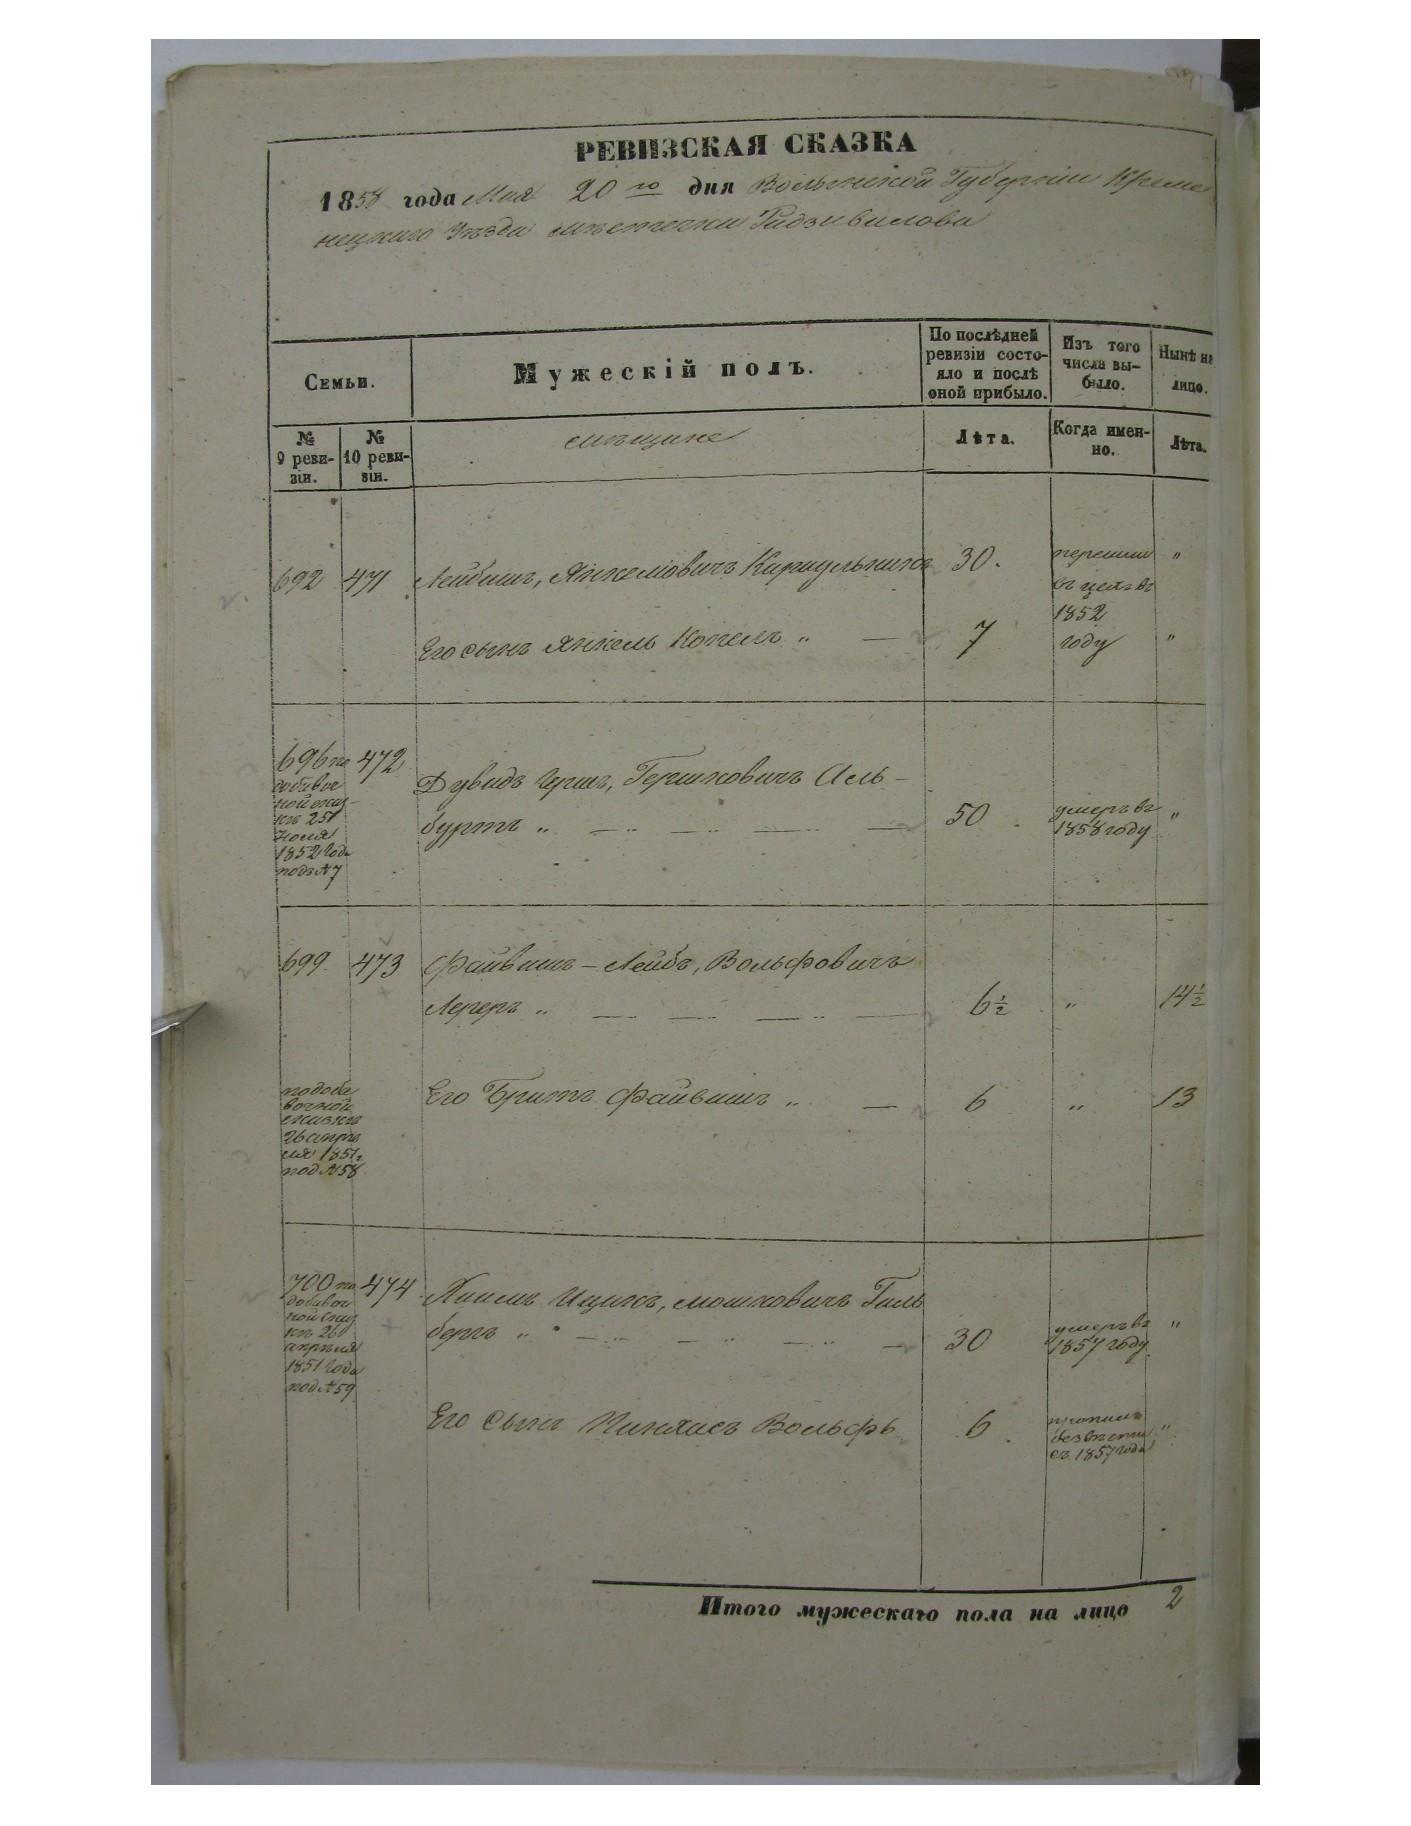 РЕВИЗСКАЯ СКАЗКА
1858 года Мая 20 го дня Волынской Губернии Креме
нецкаго Уѣзда мѣстечка Радзивилова
Семьи.
Мужескій полъ.
По послѣдней ревизіи состояло и послѣ оной прибыло.
Изъ того числа выбыло.
Нынѣ на лицо.
№ 9 ревизіи.
№ 10 ревизіи.
мѣщане
Лѣта.
Когда именно.
Лѣта.
692 471 Лейбишъ, Янкеліовичъ 30. "
въ 1852 году
Его сынъ Янкель Копель " — 7 "
696 по 472 Дувидъ Гершъ, Гершковичъ Аль-
добавочной сказкѣ 25 Іюля 1852 Года подъ №7
буртъ " 50 умеръ въ 1858 году "
699 473 Файвишъ-Лейбъ, Вольфовичъ
Лереръ " 6½ " 14½
по добавочной сказкѣ 26 апрѣля 1851 г. под №58
Его Братъ Файвишъ " — 6 " 13
700 по 474 Хаимъ Ицикъ, Мошковичъ Гиль
добавочной сказкѣ 26 апрѣля 1851 Года под №59
бергъ " 30 умеръ въ 1857 году "
Его Сынъ Пинхасъ Вольфъ 6 безвѣсти съ 1857 года "
Итого мужескаго пола на лицо 2